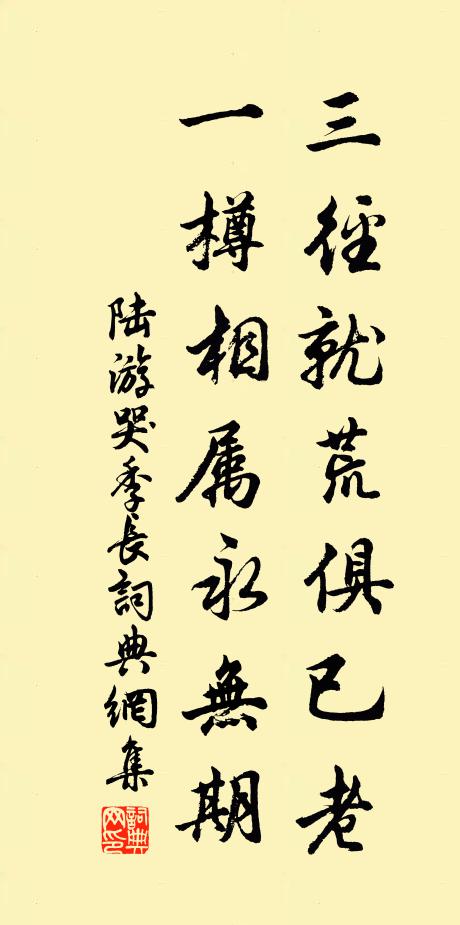 三徑就荒俱已老
一樽相属永無期
陆游哭季長詞典網集
詞典网印